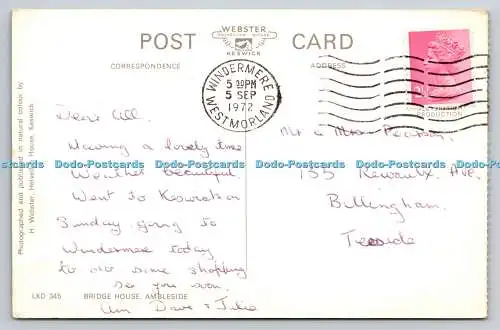 WEBSTER
KESWICK
POST CARD
CORRESPONDENCE
ADDRESS
WINDERMERE
WESTMORLAND
5 30PM
5 SEP
1972
Dear All.
Having a lovely time
Weather beautiful
Went to
Sunday going to
Windermere today
to do some shopping
see you soon.
Dave + Julie
Mr & Mrs Pearson,
135 Rievaulx Ave,
Billingham.
Teesside
Photographed and published in natural colour by
H. Webster, House, Keswick
LKD 345 BRIDGE HOUSE, AMBLESIDE
Dodo-Postcards Dodo-Postcards Dodo-Postcards Dodo-Postcards Dodo-Postcards